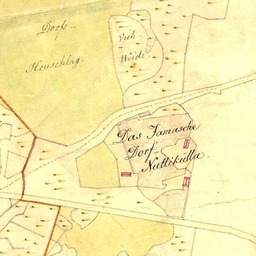 Dorfs-
Heuschlag.
Vieh
Weide
Das Jamasche
Dorf-
Nuttikülla.